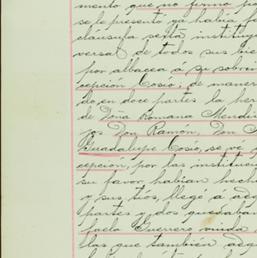 mento que no firmo po
se le presento ya habia f
clausula sesta instituy
versal de todos sus bie
por albacea á su sobrin
cepción Cosio; de maner
do en doce partes la her
de Doña Romana Mendi
jos Don Ramón, Don
Guadalupe Cosio, se vé
cepción, por las institu
su favor habian hech
y sus tios, llegó á adq
partes y dos quedaban
faela Guerrero viuda
llas que tambien adq